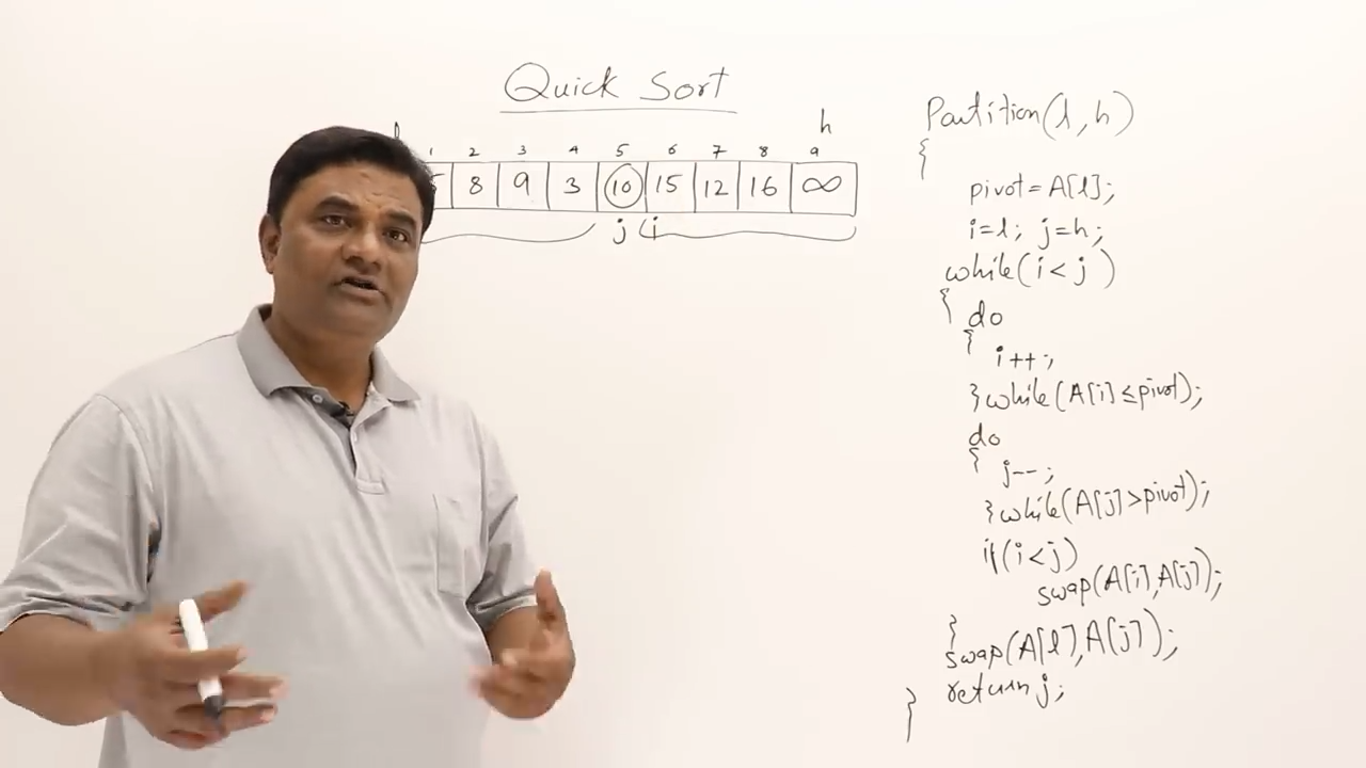 Quick Sort
h
1 2 3 4 5 6 7 8 9
8 9 3 10 15 12 16 ∞
j i
Partition(l,h)
{
pivot=A[l];
i=l; j=h;
while(i<j)
{ do
{
i++;
}while(A[i]≤pivot);
do
{
j--;
}while(A[j]>pivot);
if(i<j)
swap(A[i],A[j]);
}
swap(A[l],A[j]);
return j;
}